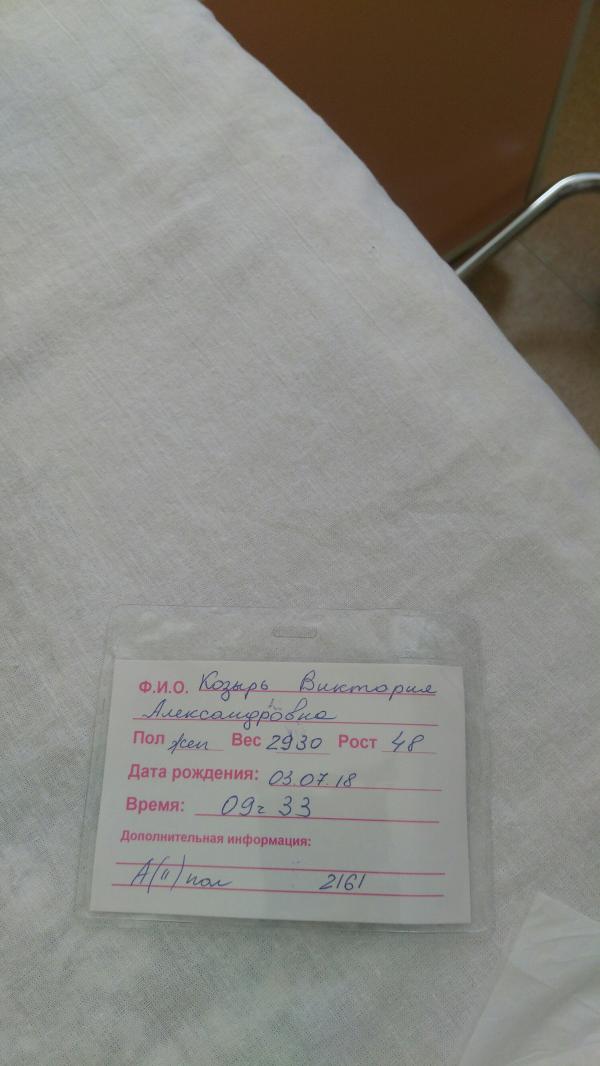 Ф.И.О. Козырь Виктория
Александровна
Пол жен Вес 2930 Рост 48
Дата рождения: 03.07.18
Время: 09ч 33
Дополнительная информация:
А(II) пол 2161